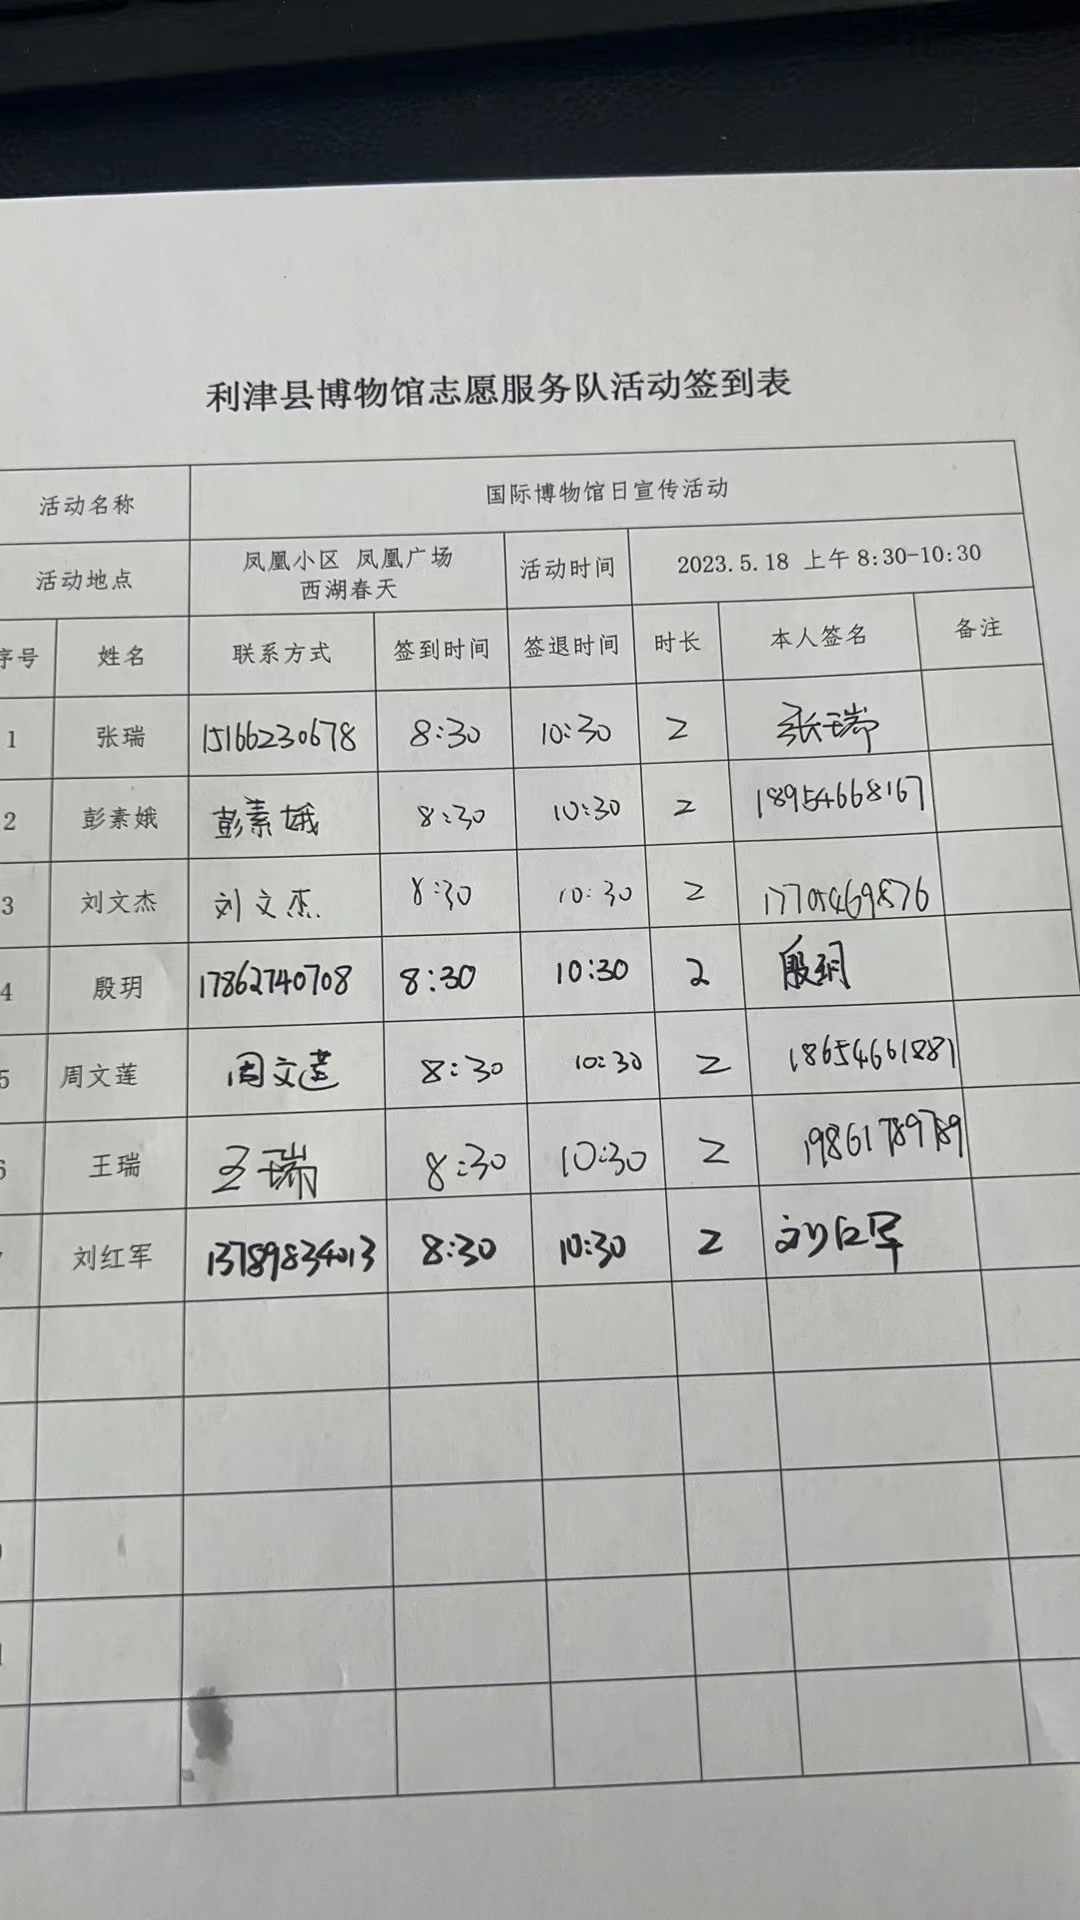 利津县博物馆志愿服务队活动签到表
活动名称 国际博物馆日宣传活动
活动地点 凤凰小区 凤凰广场 西湖春天 活动时间 2023.5.18 上午 8:30-10:30
序号 姓名 联系方式 签到时间 签退时间 时长 本人签名 备注
1 张瑞 15166230678 8:30 10:30 2 张瑞
2 彭素娥 彭素娥 8:30 10:30 2 18954668167
3 刘文杰 刘文杰 8:30 10:30 2 17705469876
4 殷玥 17862740708 8:30 10:30 2 殷玥
5 周文莲 周文莲 8:30 10:30 2 18654661881
6 王瑞 王瑞 8:30 10:30 2 19861789789
7 刘红军 13789834013 8:30 10:30 2 刘红军